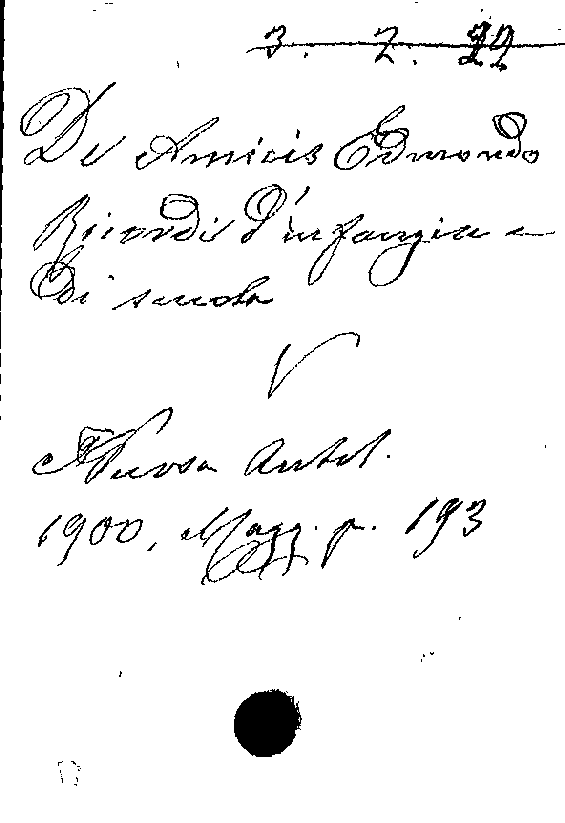 3. 7. 22
De Amicis Edmondo
Ricordi d'infanzia e
di scuola
V
Nuova Antol.
1900, Magg. p. 193